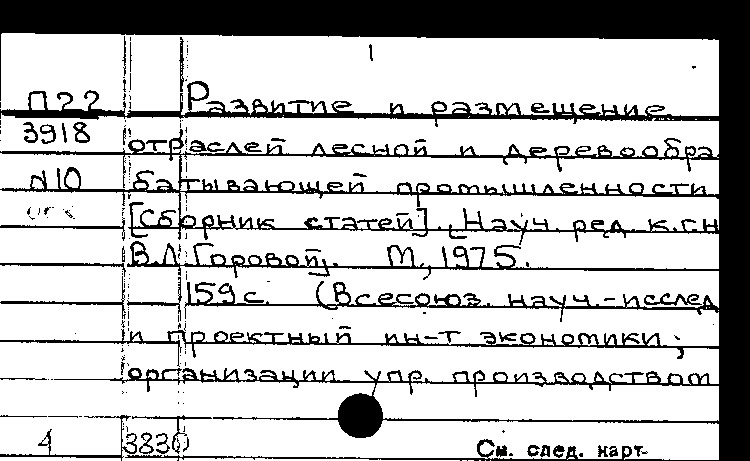 1
П22 Развитие и размещение
3918 отраслей лесной и деревообра
№10 батывающей промышленности.
[Сборник статей]. [Науч. ред. к.с.н
В.Л. Горовой]. М., 1975.
159 с. (Всесоюз. науч.-исслед
и проектный ин-т экономики,
организации упр. производством
4 3830 См. след. карт-